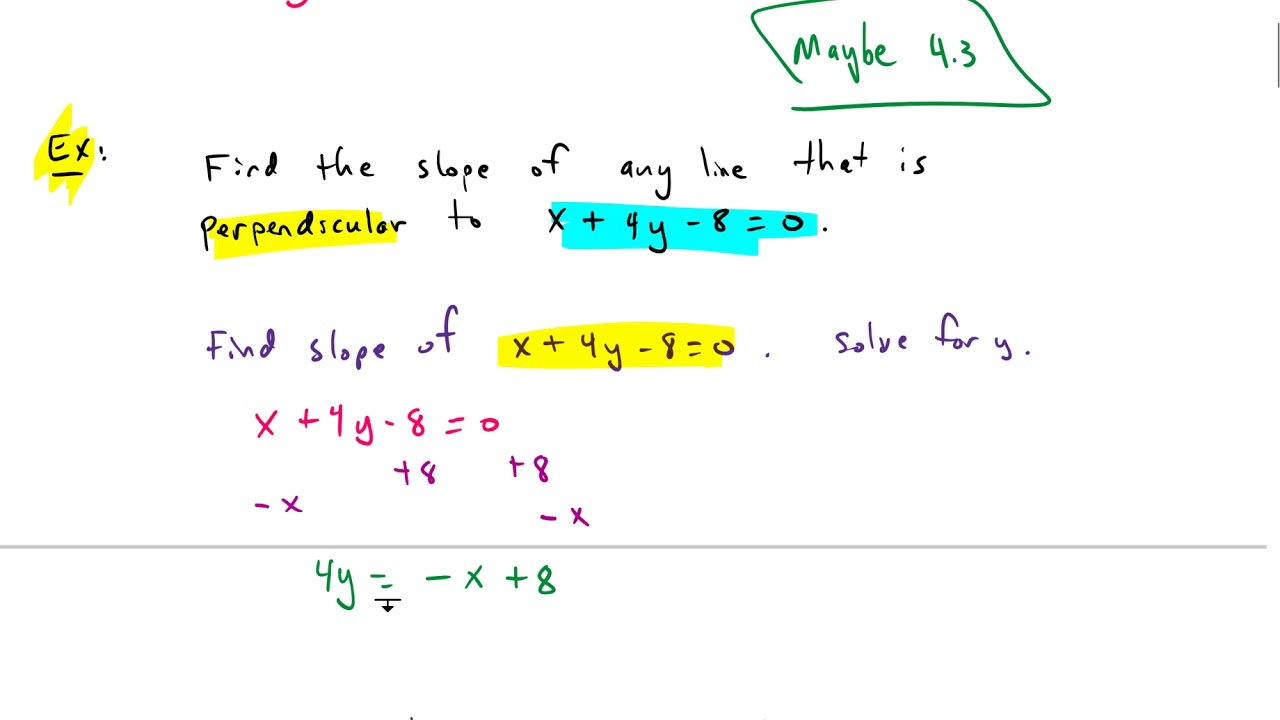 Maybe 4.3
Ex:
Find the slope of any line that is
perpendscular to x + 4y - 8 = 0.
Find slope of x + 4y - 8 = 0. solve for y.
x + 4y - 8 = 0
+8 +8
- x - x
4y = - x + 8